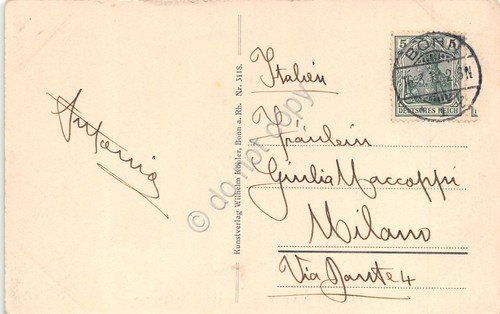 Antonia
Kunstverlag Wilhelm Köhler, Bonn a. Rh. Nr. 3118.
Italien
Fräulein
Giulia Maccoppi
Milano
Via Dante 4
5
BONN
DEUTSCHES REICH
© do not copy